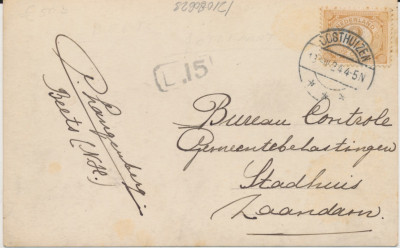 121082623
NEDERLAND
OOSTHUIZEN
24 4-5N
L.15
P. Langenberg
Beets (N.H.)
Bureau Controle
Gemeentebelastingen
Stadhuis
Zaandam.